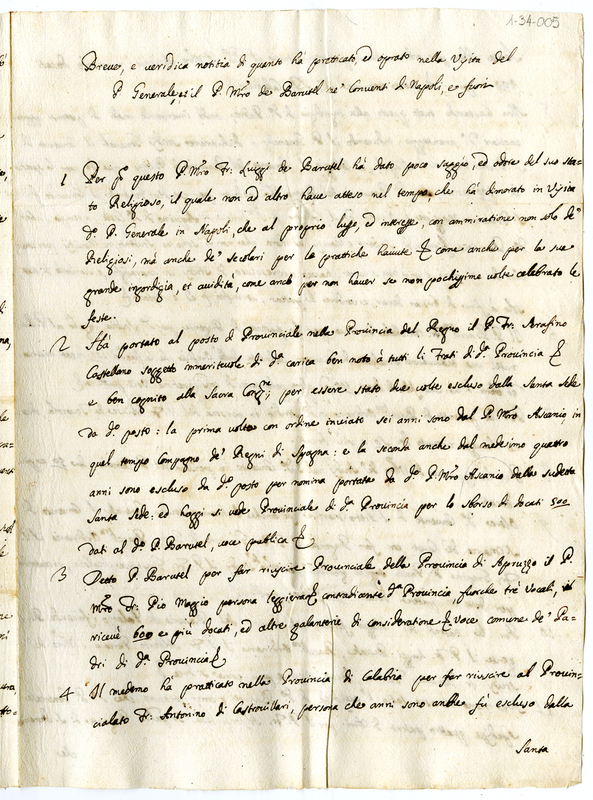 1-34-005
Breve, e veridica notitia di quanto hà pratticato, ed oprato nella Visita del
P. Generale, il P. Mro de Barutel ne' Conventi di Napoli, e fuori
1 Per pº questo P. Mro Fr. Luiggi de Barutel hà dato poco saggio, ed odore del suo sta=
to Religioso, il quale non ad altro have atteso nel tempo, che hà dimorato in Visita
dº P. Generale in Napoli, che al proprio lusso, ed interesse, con ammiratione non solo de'
Religiosi, mà anche de' secolari per le prattiche havute come anche per la sua
grande ingordigia, et avidità, come anco per non haver se non pochissime volte celebrato le
feste.
2 Hà portato al posto di Provinciale nella Provincia del Regno il P. Fr. Serafino
Castellano soggetto immeritevole di dª carica ben noto à tutti li Frati di dª Provincia
e ben cognito alla Sacra Congne; per essere stato due volte escluso dalla Santa Sede
da dº posto: la prima volta con ordine inviato sei anni sono dal P. Mro Ascanio, in
quel tempo Compagno de' Regni di Spagna: e la seconda anche dal medesimo quattro
anni sono escluso da dº posto per nomina portata da dº P. Mro Ascanio della sudetta
Santa Sede: ed hoggi si vede Provinciale di dª Provincia per lo sborso di docati 500
dati al dº P. Barutel, voce publica
3 Detto P. Barutel per far riuscire Provinciale della Provincia di Apruzzo il P.
Mro Fr. Pio Maggio persona leggiera contradicente dª Provincia fuorche trè Vocali,
ricevè 600 e più docati, ed altre galanterie di consideratione voce comune de' Pa=
dri di dª Provincia
4 Il medemo hà pratticato nella Provincia di Calabria per far riuscire al Provin=
cialato Fr. Antonino di Castrovillari, persona che anni sono anche fù escluso dalla
Santa